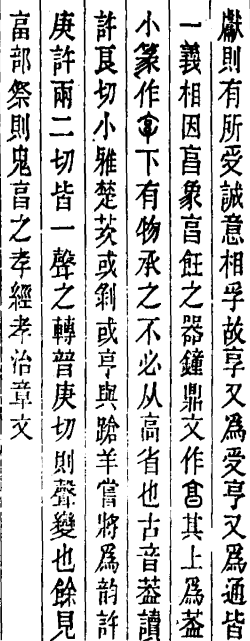 獻則有所受誠意相孚故享又爲受亨又爲通皆
一義相因㐭象㐭飪之器鐘鼎文作㐭其上爲葢
小篆作下有物承之不必从高省也古音葢讀
許良切小雅楚茨或剝或亨與蹌羊嘗將爲韵許
庚許兩二切皆一聲之轉普庚切則聲變也餘見
畗部祭則鬼亯之孝經孝治章文